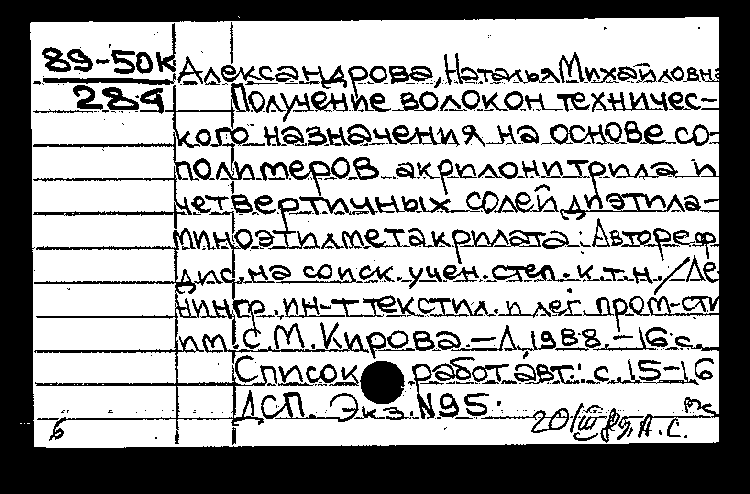 89-50К Александрова, Наталья Михайловна
284 Получение волокон техничес-
кого назначения на основе со-
полимеров акрилонитрила и
четвертичных солей диэтила-
миноэтилметакрилата: Автореф
дис. на соиск. учен. степ. к.т.н. / Ле-
нингр. ин-т текстил. и лег. пром-сти
им. С.М. Кирова. - Л, 1988. - 16 с.
Список работ авт.: с. 15-16
ДСП. Экз. N95.
б 20/III 89 А.С.